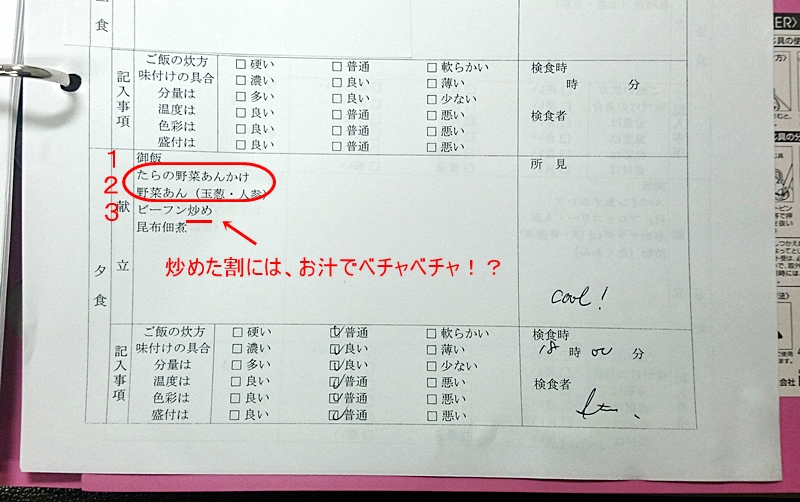 食
記入事項
ご飯の炊方 □硬い □普通 □軟らかい 検食時
味付けの具合 □濃い □良い □薄い 時 分
分量は □多い □良い □少ない
温度は □良い □普通 □悪い 検食者
色彩は □良い □普通 □悪い
盛付は □良い □普通 □悪い
夕食
献立
1 御飯 所見
たらの野菜あんかけ
2 野菜あん（玉葱・人参）
3 ビーフン炒め
昆布佃煮
炒めた割には、お汁でベチャベチャ！？
cool!
記入事項
ご飯の炊方 □硬い ☑普通 □軟らかい 検食時
味付けの具合 □濃い ☑良い □薄い 18 時 00 分
分量は □多い ☑良い □少ない
温度は □良い ☑普通 □悪い 検食者
色彩は □良い ☑普通 □悪い
盛付は □良い ☑普通 □悪い
ER〉